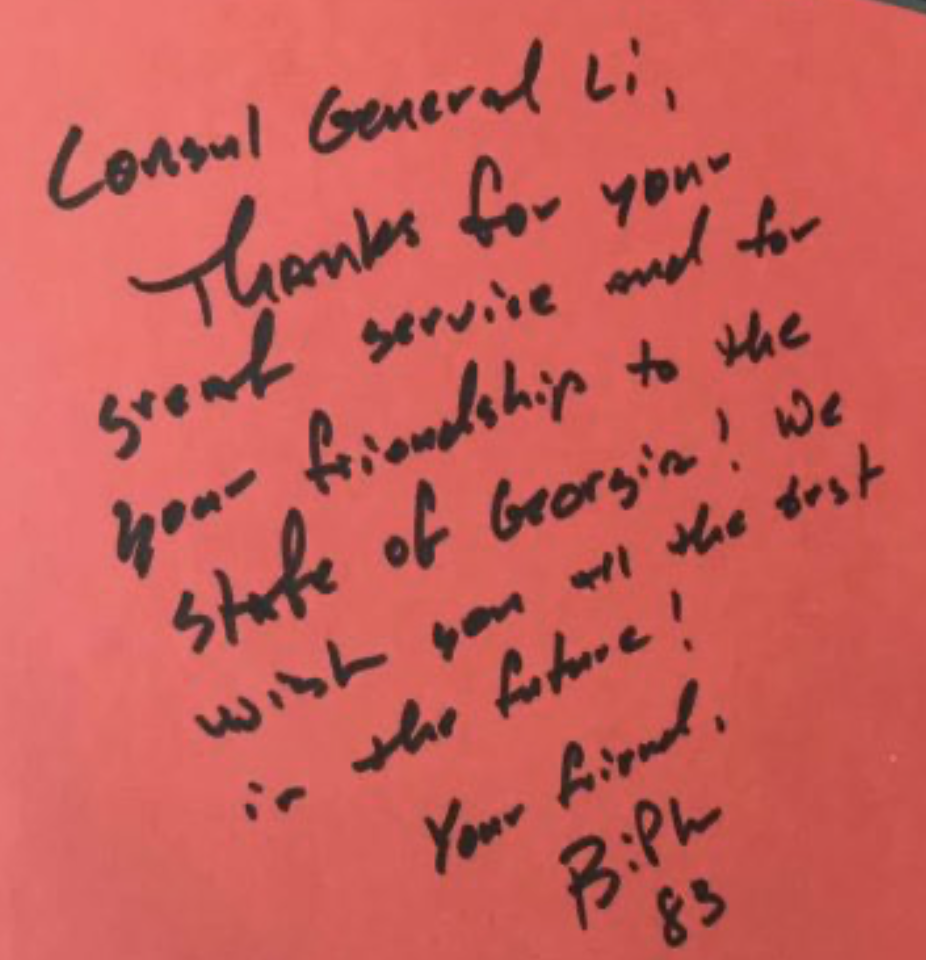 Consul General Li,
Thanks for your
great service and for
your friendship to the
State of Georgia! We
wish you all the best
in the future!
Your friend,
83